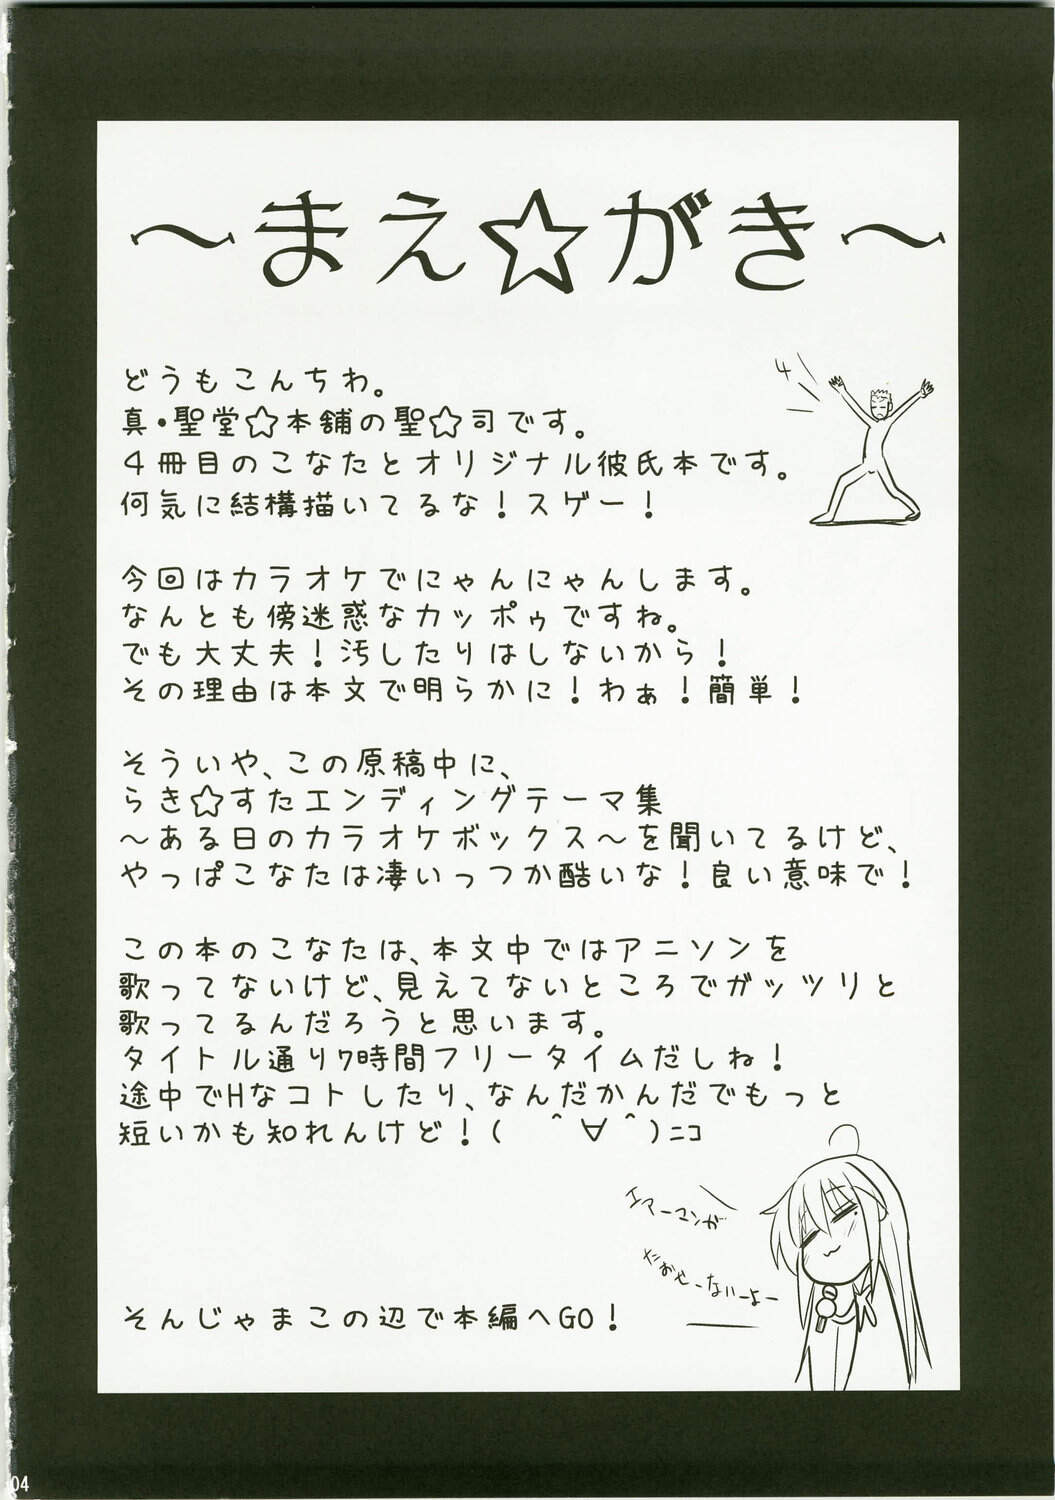 ～まえ☆がき～
どうもこんちわ。
真・聖堂☆本舗の聖☆司です。
４冊目のこなたとオリジナル彼氏本です。
何気に結構描いてるな！スゲー！
4
今回はカラオケでにゃんにゃんします。
なんとも傍迷惑なカッポゥですね。
でも大丈夫！汚したりはしないから！
その理由は本文で明らかに！わぁ！簡単！
そういや、この原稿中に、
らき☆すたエンディングテーマ集
～ある日のカラオケボックス～を聞いてるけど、
やっぱこなたは凄いっつか酷いな！良い意味で！
この本のこなたは、本文中ではアニソンを
歌ってないけど、見えてないところでガッツリと
歌ってるんだろうと思います。
タイトル通り7時間フリータイムだしね！
途中でHなコトしたり、なんだかんだでもっと
短いかも知れんけど！(　＾∀＾)ﾆｺ
エアーマンが
たおせーないーよー
そんじゃまこの辺で本編へGO！
04